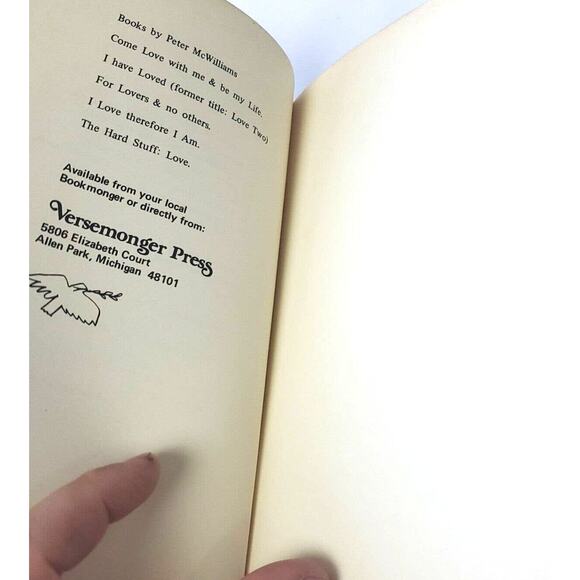 Books by Peter McWilliams
Come Love with me & be my Life.
I have Loved (former title: Love Two)
For Lovers & no others.
I Love therefore I Am.
The Hard Stuff: Love.
Available from your local
Bookmonger or directly from:
Versemonger Press
5806 Elizabeth Court
Allen Park, Michigan 48101